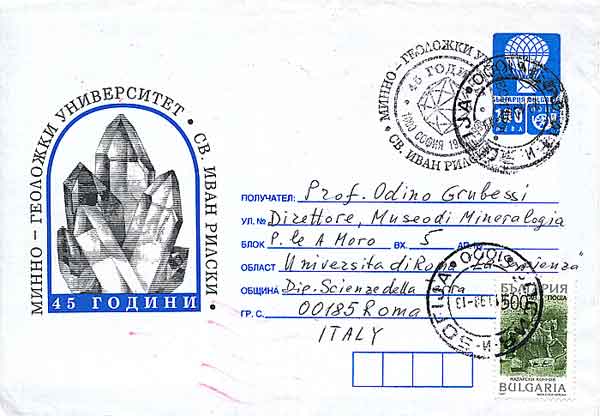 МИННО - ГЕОЛОЖКИ УНИВЕРСИТЕТ • СВ. ИВАН РИЛСКИ •
45 ГОДИНИ
МИННО - ГЕОЛОЖКИ
СВ. ИВАН РИЛСКИ
45 ГОДИНИ
1000 СОФИЯ
БЪЛГАРИЯ
100
ПОЛУЧАТЕЛ: Prof. Odino Grubessi
УЛ. № Direttore, Museo di Mineralogia
БЛОК P. le A Moro ВХ. 5 АП.
ОБЛАСТ Universita di Roma "La Sapienza"
ОБЩИНА Dip. Scienze della Terra
ГР. С. 00185 Roma
ITALY
SOFIJA
БЪЛГАРИЯ
500 ПОЩА
BULGARIA